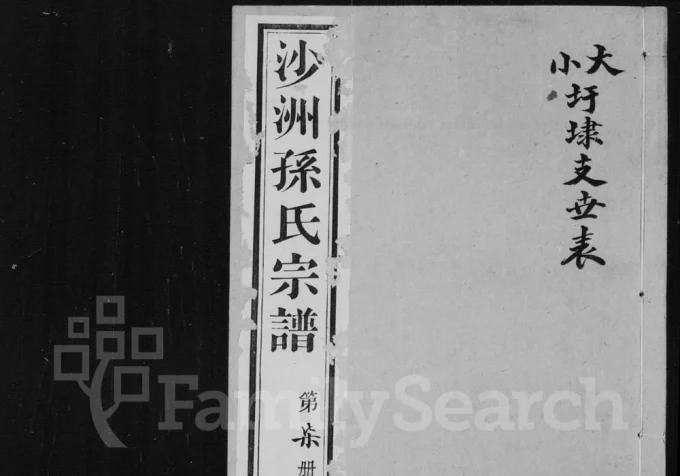 大小圩埭支世表
沙洲孫氏宗譜
第柒册
FamilySearch